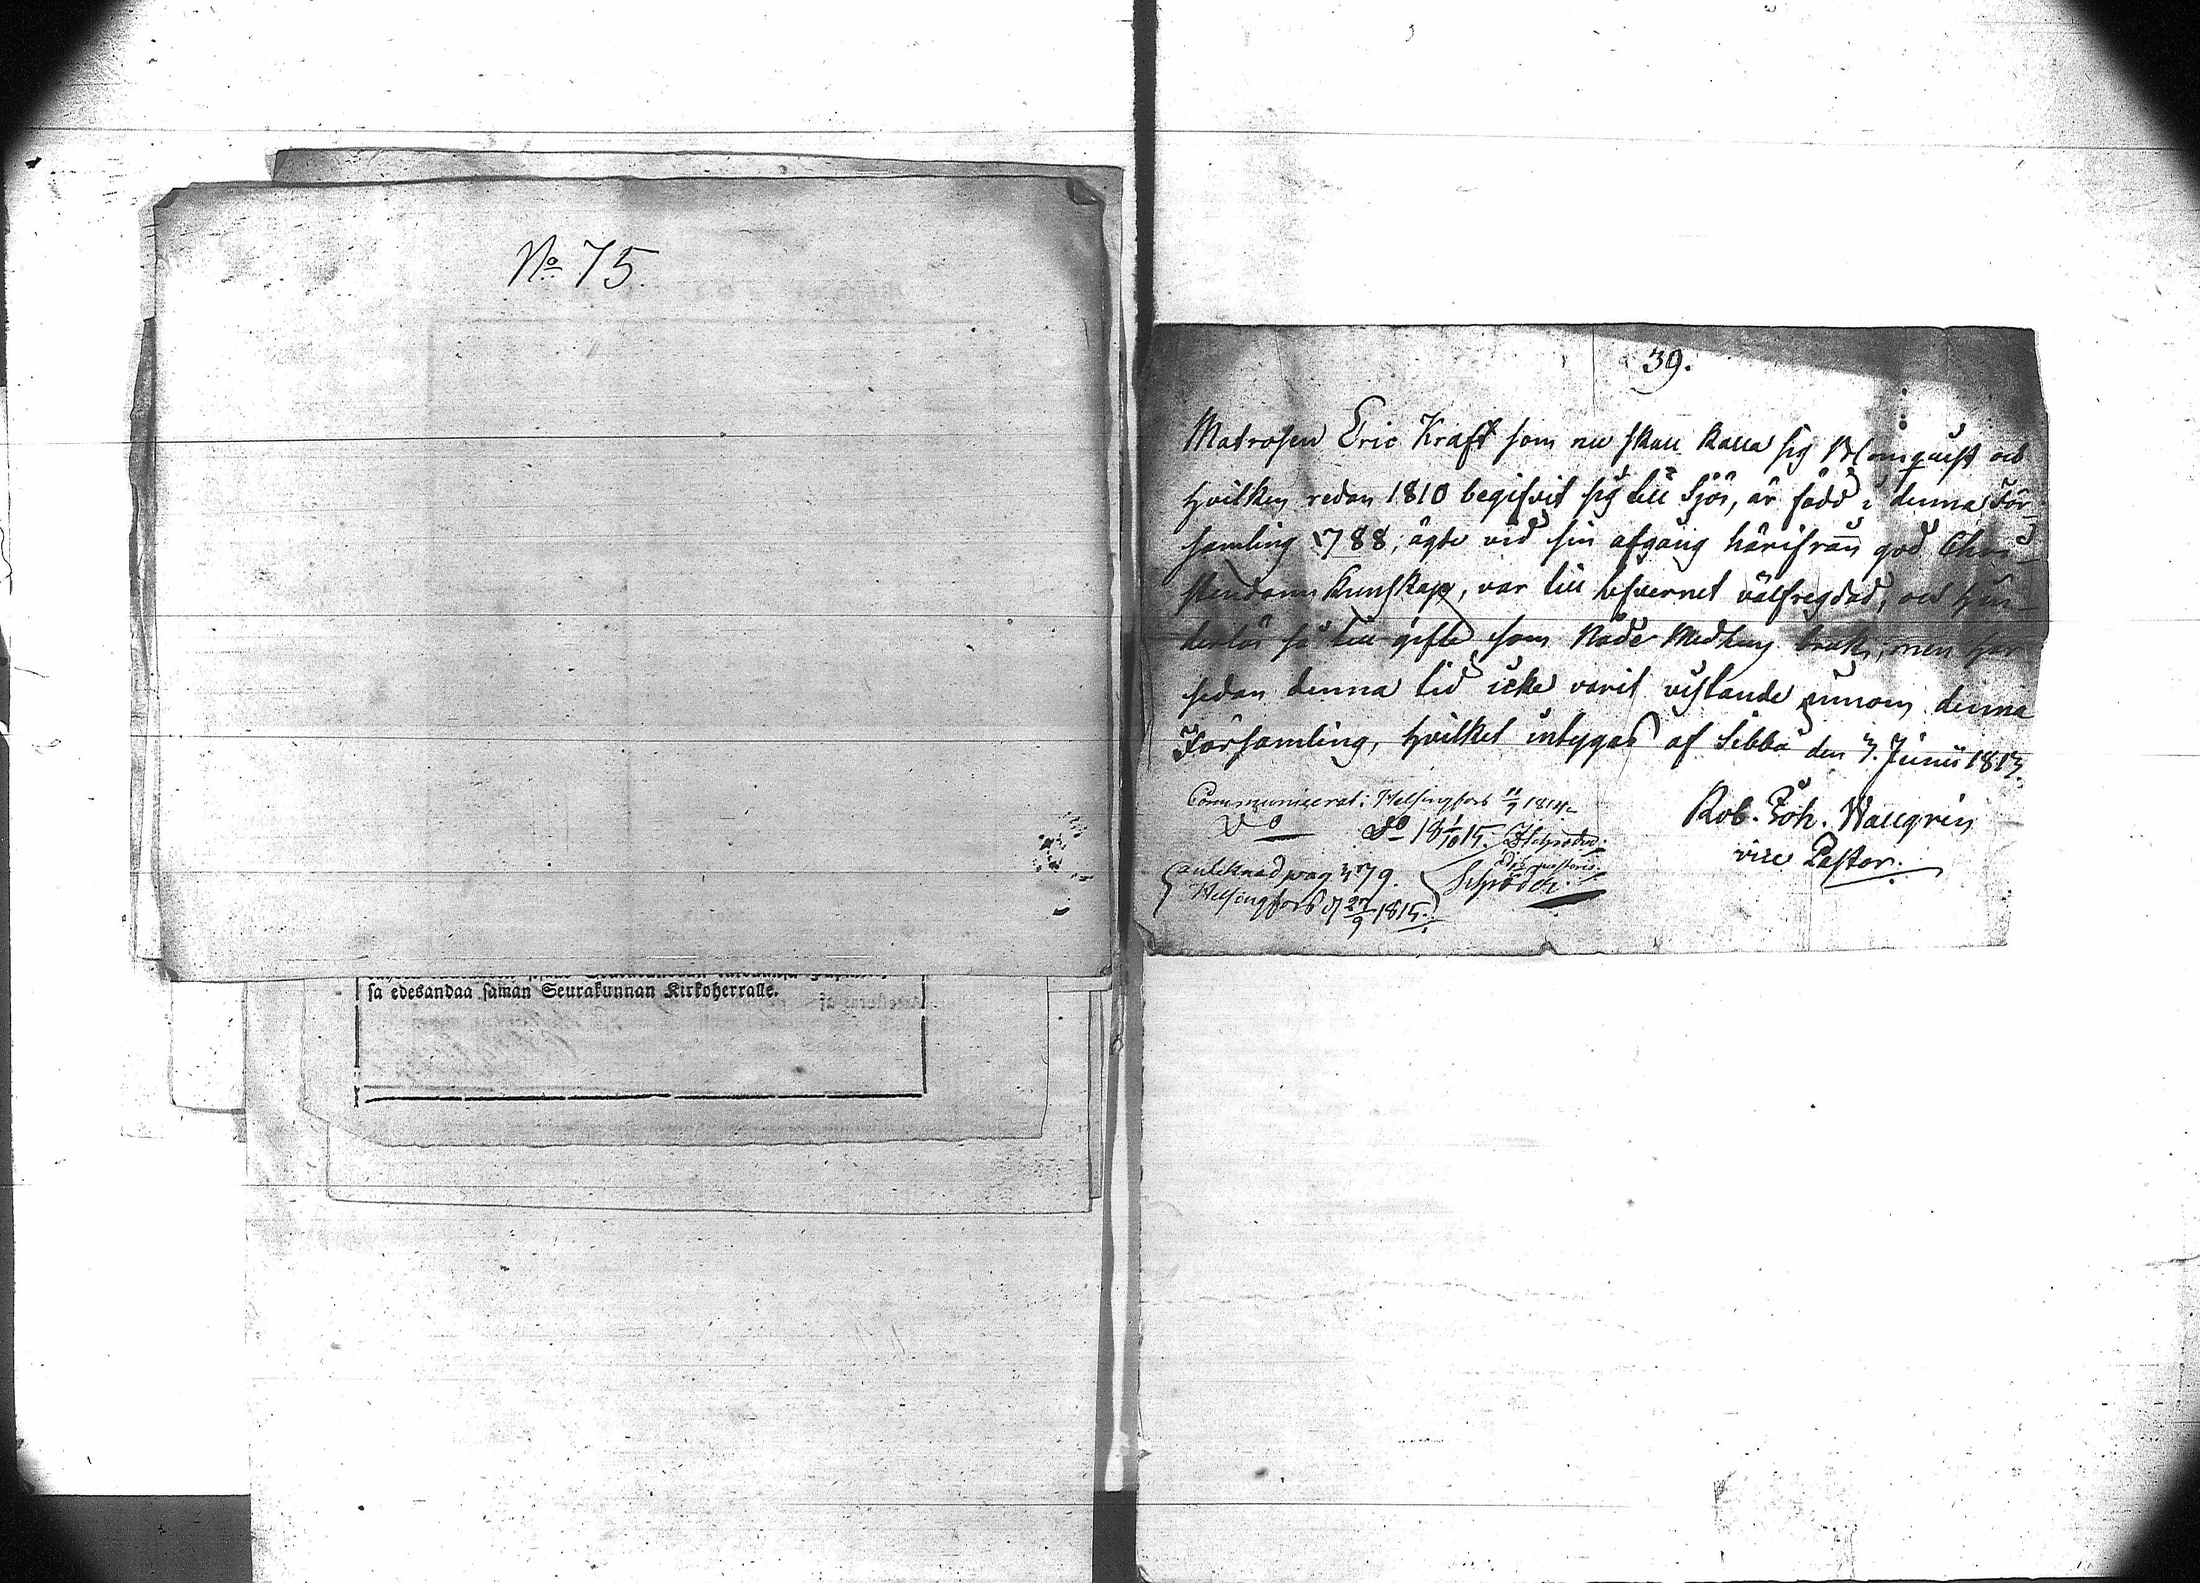 No 75.
sa edesandaa saman Seurakunnan Kirkoherralle.
39.
Matrosen Eric Kraft som nu skall kalla sig Blomquist och
hvilken redan 1810 begifvit sig till Sjös, är född i denna För-
samling 1788, ägde vid sin afgång härifrån god Chri-
stendoms kunskap, var till lefvernet välfregdad, och hin-
derlös så till gifte som Nåde Medlens bruk, men har
sedan denna tid icke varit vistande innom denna
Församling, hvilket intygas af Sibbo den 3. Junii 1813.
Rob. Joh. Wallgrén
vice Pastor.
Communicerat: Helsingfors 11/7 1814
Do Do 18 1/10 15.
anteknad pag 379.
Helsingfors d 27/9 1815.
Schröder.